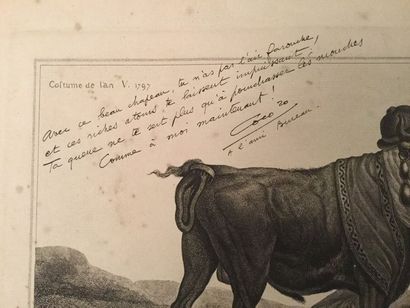 Costume de l'an V. 1797
Avec ce beau chapeau, tu n'as pas l'air farouche
et ces riches atours, te laissent impuissant,
Ta queue ne te sert plus qu'à pourchasser les mouches
Comme à moi maintenant !
Coco 20
A l'ami Bureau.